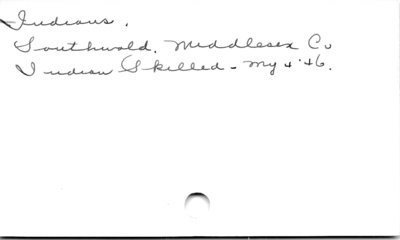 Indians.
Southwold. Middlesex Co
Indian Skilled - My 4 '46.